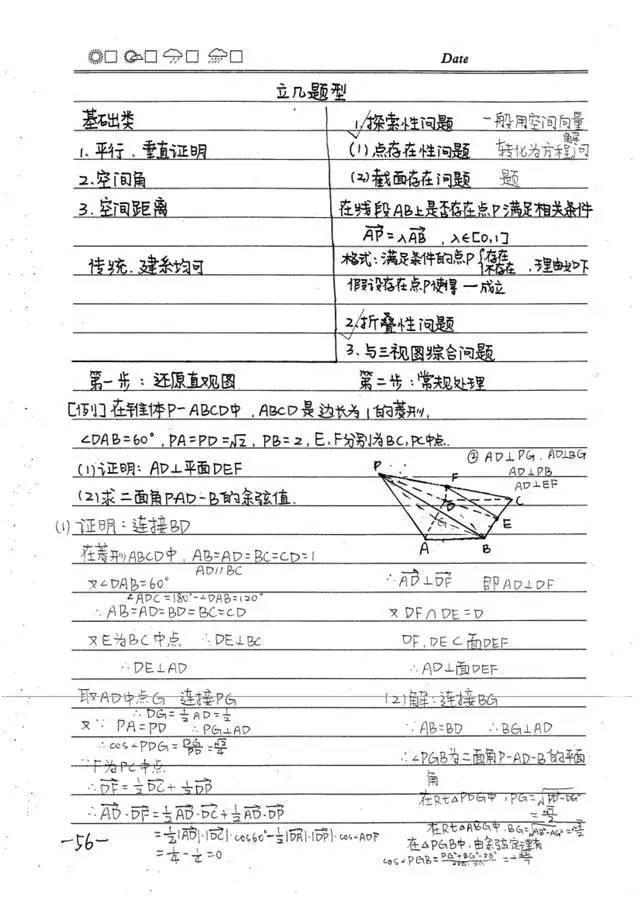 Date
立几题型
基础类
1、平行、垂直证明
2.空间角
3.空间距离
传统、建系均可
1.探索性问题 一般用空间向量
(1)点存在性问题 转化为方程解问
(2)截面存在问题 题
在线段AB上是否存在点P满足相关条件
AP=λAB , λ∈[0,1]
格式:满足条件的点P{存在 不存在,理由如下
假设存在点P使得一成立
2.折叠性问题
3.与三视图综合问题
第一步:还原直观图 第二步:常规处理
[例]在锥体P-ABCD中,ABCD是边长为1的菱形,
∠DAB=60°,PA=PD=√2,PB=2,E,F分别为BC,PC中点.
(1)证明:AD⊥平面DEF
(2)求二面角P-AD-B的余弦值.
② AD⊥PG.AD⊥BG
AD⊥PB
AD⊥EF
P
F
D
C
G
E
A
B
(1)证明:连接BD
在菱形ABCD中,AB=AD=BC=CD=1
AD∥BC
又∠DAB=60°
∠ADC=180°-∠DAB=120°
∴AB=AD=BD=BC=CD
又E为BC中点 ∴DE⊥BC
∴DE⊥AD
取AD中点G 连接PG
∴DG=½AD=½
又∵PA=PD ∴PG⊥AD
∴cos∠PDG=DG/PD=√2/4
∵F为PC中点
∴DF=½DC+½DP
∴AD·DF=½AD·DC+½AD·DP
=½|AD|·|DC|·cos60°-½|DA|·|DP|·cos∠ADP
=¼-¼=0
∴AD⊥DF 即AD⊥DF
又DF∩DE=D
DF,DE⊂面DEF
∴AD⊥面DEF
(2)解:连接BG
∵AB=BD ∴BG⊥AD
∴∠PGB为二面角P-AD-B的平面
角
在Rt△PDG中,PG=√PD²-DG²
=√7/2
在Rt△ABG中,BG=√AB²-AG²=√3/2
在△PGB中,由余弦定理有
cos∠PGB=
-56-